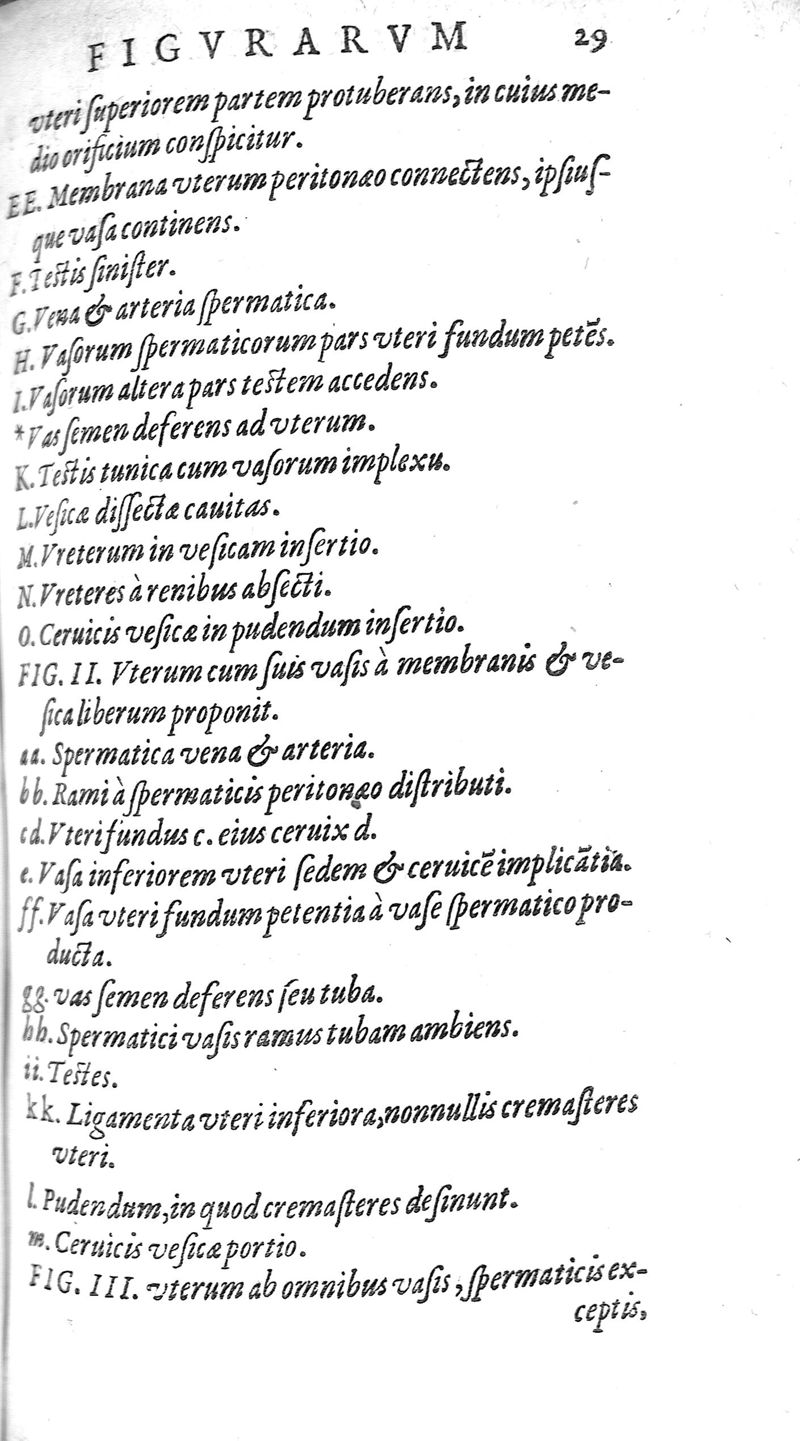 FIGVRARVM 29
vteri ſuperiorem partem protuberans, in cuius me-
dio orificium conſpicitur.
EE. Membrana vterum peritonæo connectens, ipſiuſ-
que vaſa continens.
F. Teſtis ſiniſter.
G. Vena & arteria ſpermatica.
H. Vaſorum ſpermaticorum pars vteri fundum petēs.
I. Vaſorum altera pars teſtem accedens.
* Vas ſemen deferens ad vterum.
K. Teſtis tunica cum vaſorum implexu.
L. Veſicæ diſſectæ cauitas.
M. Vreterum in veſicam inſertio.
N. Vreteres à renibus abſecti.
O. Ceruicis veſicæ in pudendum inſertio.
FIG. II. Vterum cum ſuis vaſis à membranis & ve-
ſica liberum proponit.
aa. Spermatica vena & arteria.
bb. Rami à ſpermaticis peritonæo diſtributi.
cd. Vteri fundus c. eius ceruix d.
e. Vaſa inferiorem vteri ſedem & ceruicē implicātia.
ff. Vaſa vteri fundum petentia à vaſe ſpermatico pro-
ducta.
gg. vas ſemen deferens ſeu tuba.
hh. Spermatici vaſis ramus tubam ambiens.
ii. Teſtes.
kk. Ligamenta vteri inferiora, nonnullis cremaſteres
vteri.
l. Pudendum, in quod cremaſteres deſinunt.
m. Ceruicis veſicæ portio.
FIG. III. vterum ab omnibus vaſis, ſpermaticis ex-
ceptis,